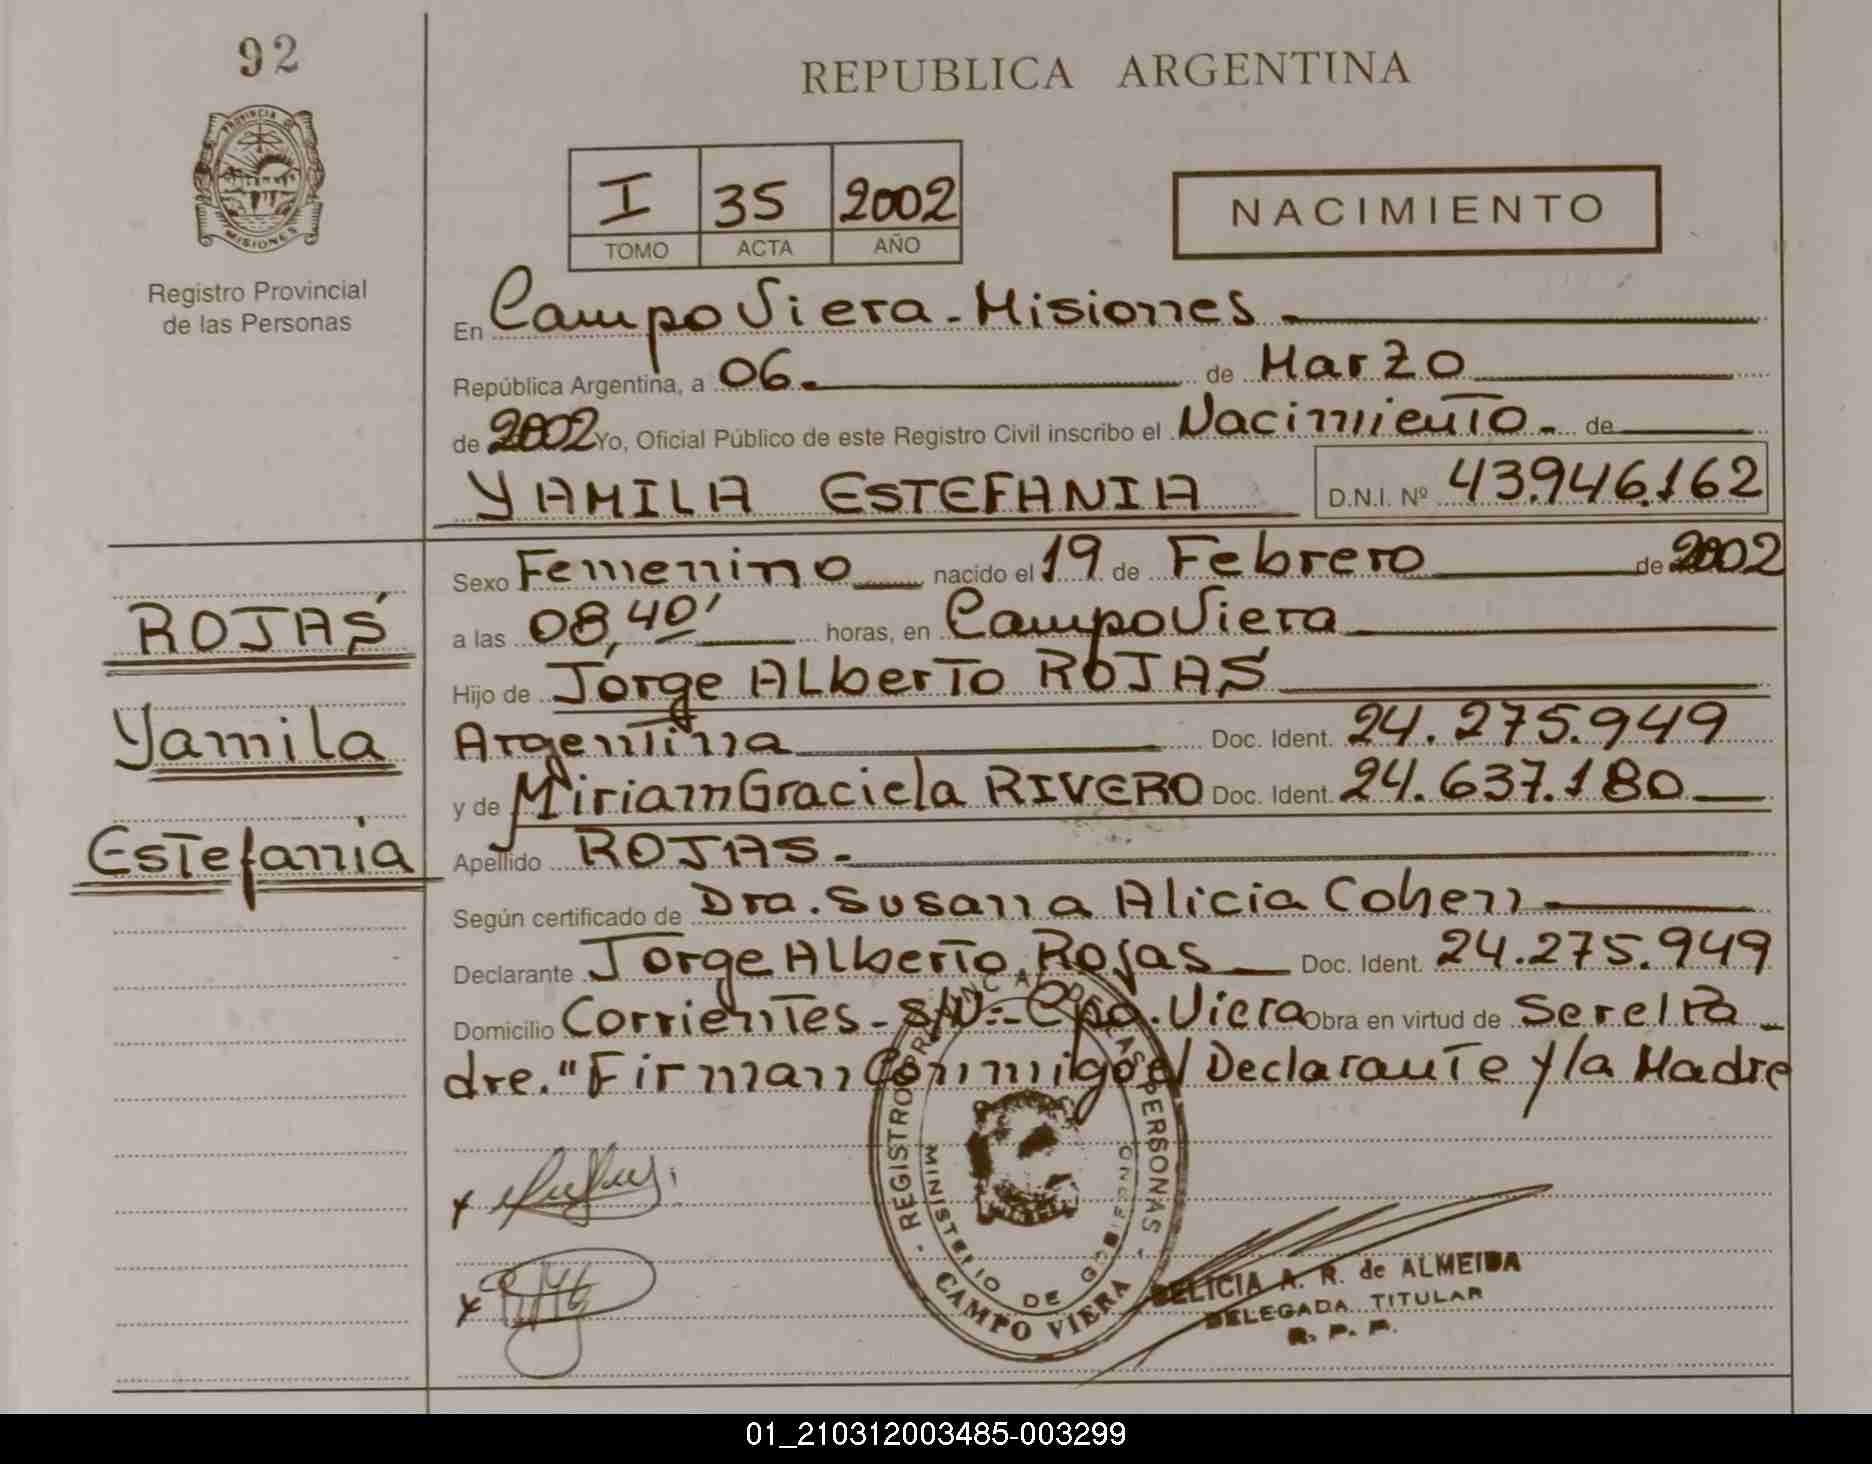 92
REPUBLICA ARGENTINA
PROVINCIA DE MISIONES
Registro Provincial
de las Personas
I 35 2002
TOMO ACTA AÑO
NACIMIENTO
En Campo Viera - Misiones
República Argentina, a 06. de Marzo
de 2002 Yo, Oficial Público de este Registro Civil inscribo el Nacimiento. de
YAMILA ESTEFANIA D.N.I. Nº 43.946.162
ROJAS
Yamila
Estefania
Sexo Femenino nacido el 19 de Febrero de 2002
a las 08,40' horas, en Campo Viera
Hijo de Jorge Alberto ROJAS
Argentina Doc. Ident. 24.275.949
y de Miriam Graciela RIVERO Doc. Ident. 24.637.180
Apellido ROJAS.
Según certificado de Dra. Susana Alicia Cohen
Declarante Jorge Alberto Rojas Doc. Ident. 24.275.949
Domicilio Corrientes - S/N - Cpo. Viera Obra en virtud de Ser el Pa-
dre. "Firman Conmigo el Declarante y la Madre
REGISTRO PROVINCIAL DE LAS PERSONAS
MINISTERIO DE GOBIERNO
CAMPO VIERA
DELICIA A. R. de ALMEIDA
DELEGADA TITULAR
R. P. P.
01_210312003485-003299